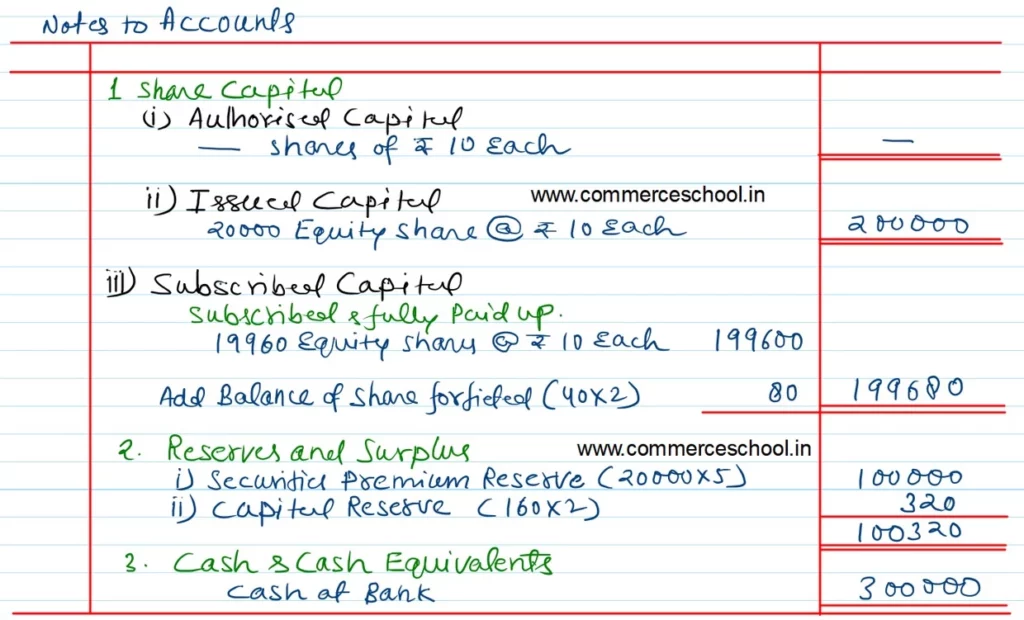 Notes to Accounts
1 Share Capital
(i) Authorised Capital
— Shares of ₹ 10 Each —
ii) Issued Capital www.commerceschool.in
20000 Equity share @ ₹ 10 Each 200000
iii) Subscribed Capital
Subscribed & fully Paid up.
19960 Equity shares @ ₹ 10 Each 199600
Add Balance of Share forfieted (40x2) 80 199680
2. Reserves and Surplus www.commerceschool.in
i) Securities Premium Reserve (20000x5) 100000
ii) Capital Reserve (160x2) 320
100320
3. Cash & Cash Equivalents
Cash at Bank 300000